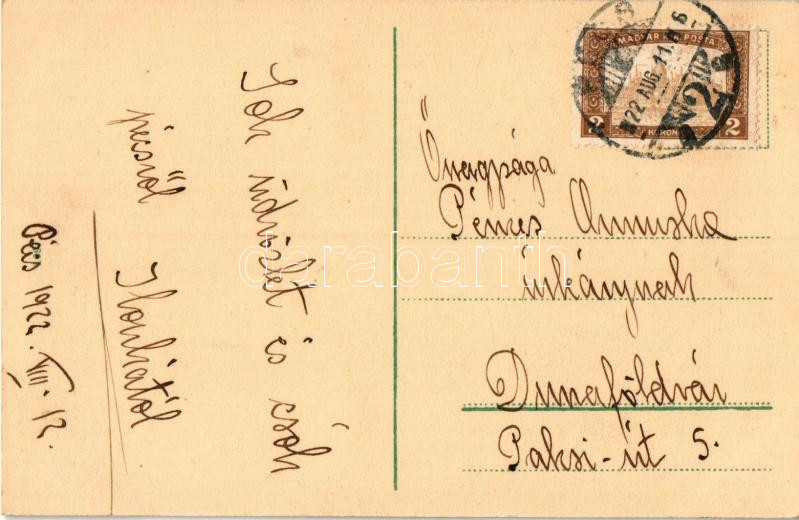 Sok üdvözlet és csók
pécsről
Ilonkától
Pécs 1922. VIII. 12.
MAGYAR KIR. POSTA
2 KORONA 2
922 AUG. 11.
Őnagysága
Pénzes Annuska
úrhölgynek
Dunaföldvár
Paksi-út 5.
darabanth